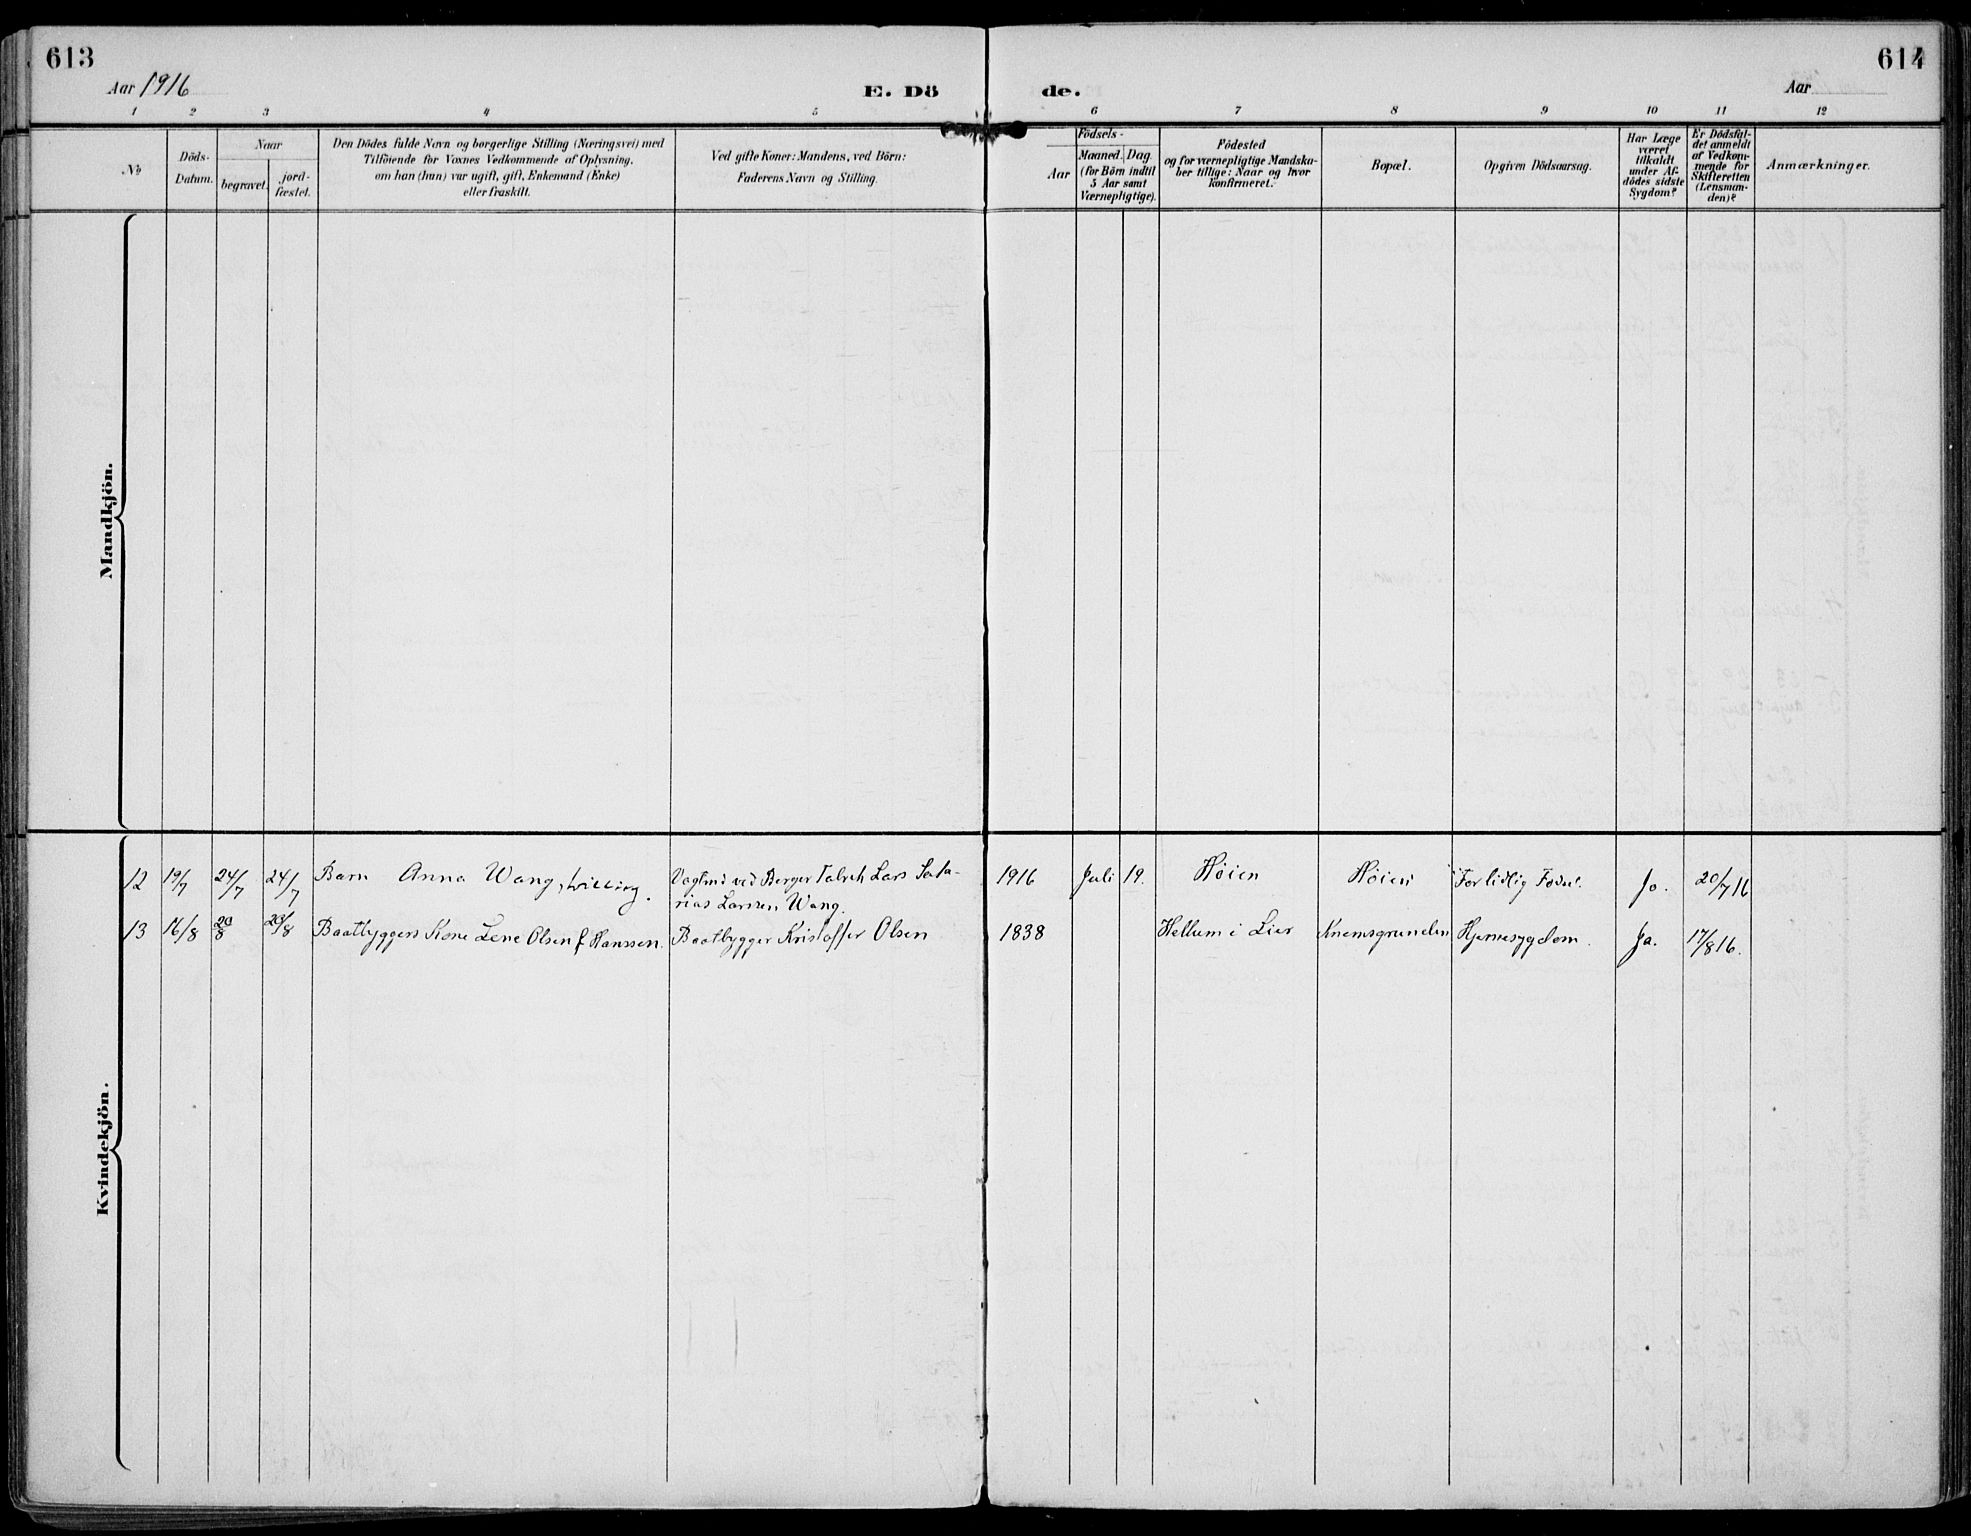 613
614
Aar 1916
E. Dö
de.
Aar
1 2 3 4 5 6 7 8 9 10 11 12
No
Döds-
Datum.
Naar
begravet.
jord-
fæstet.
Den Dödes fulde Navn og borgerlige Stilling (Næringsvei) med
Tilföiende for Voxnes Vedkommende af Oplysning.
om han (hun) var ugift, gift, Enkemand (Enke)
eller fraskilt.
Ved gifte Koner: Mandens, ved Börn:
Faderens Navn og Stilling.
Aar
Födsels-
Maaned. Dag
(for Börn indtil
5 Aar samt
Værnepligtige).
Födested
og for værnepligtige Mandska-
ber tillige: Naar og hvor
konfirmeret.
Bopæl.
Opgiven Dödsaarsag.
Har Læge
været
tilkaldt
under Af-
dödes sidste
Sygdom?
Er Dödsfal-
det anmeldt
af Vedkom-
mende for
Skifteretten
(Lensman-
den)?
Anmærkninger.
Mandkjön.
Kvindekjön.
12 19/7 24/7 24/7 Barn Anna Wang, tvilling. Vagtm. ved Berger Fabrik Lars Saka-
rias Larsen Wang. 1916 Juli 19. Höien Höien For tidlig Födsel. Ja. 20/7 16
13 16/8 20/8 20/8 Baatbyggers Kone Lene Olsen f. Hanssen. Baatbygger Kristoffer Olsen 1838 Hellum i Lier Knemsgrunden Hjernesygdom. Ja. 17/8 16.